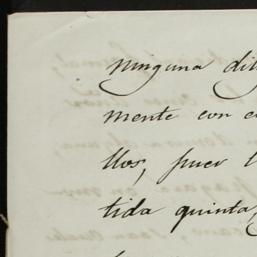 ninguna
mente con
llos, pues
tida quinta,